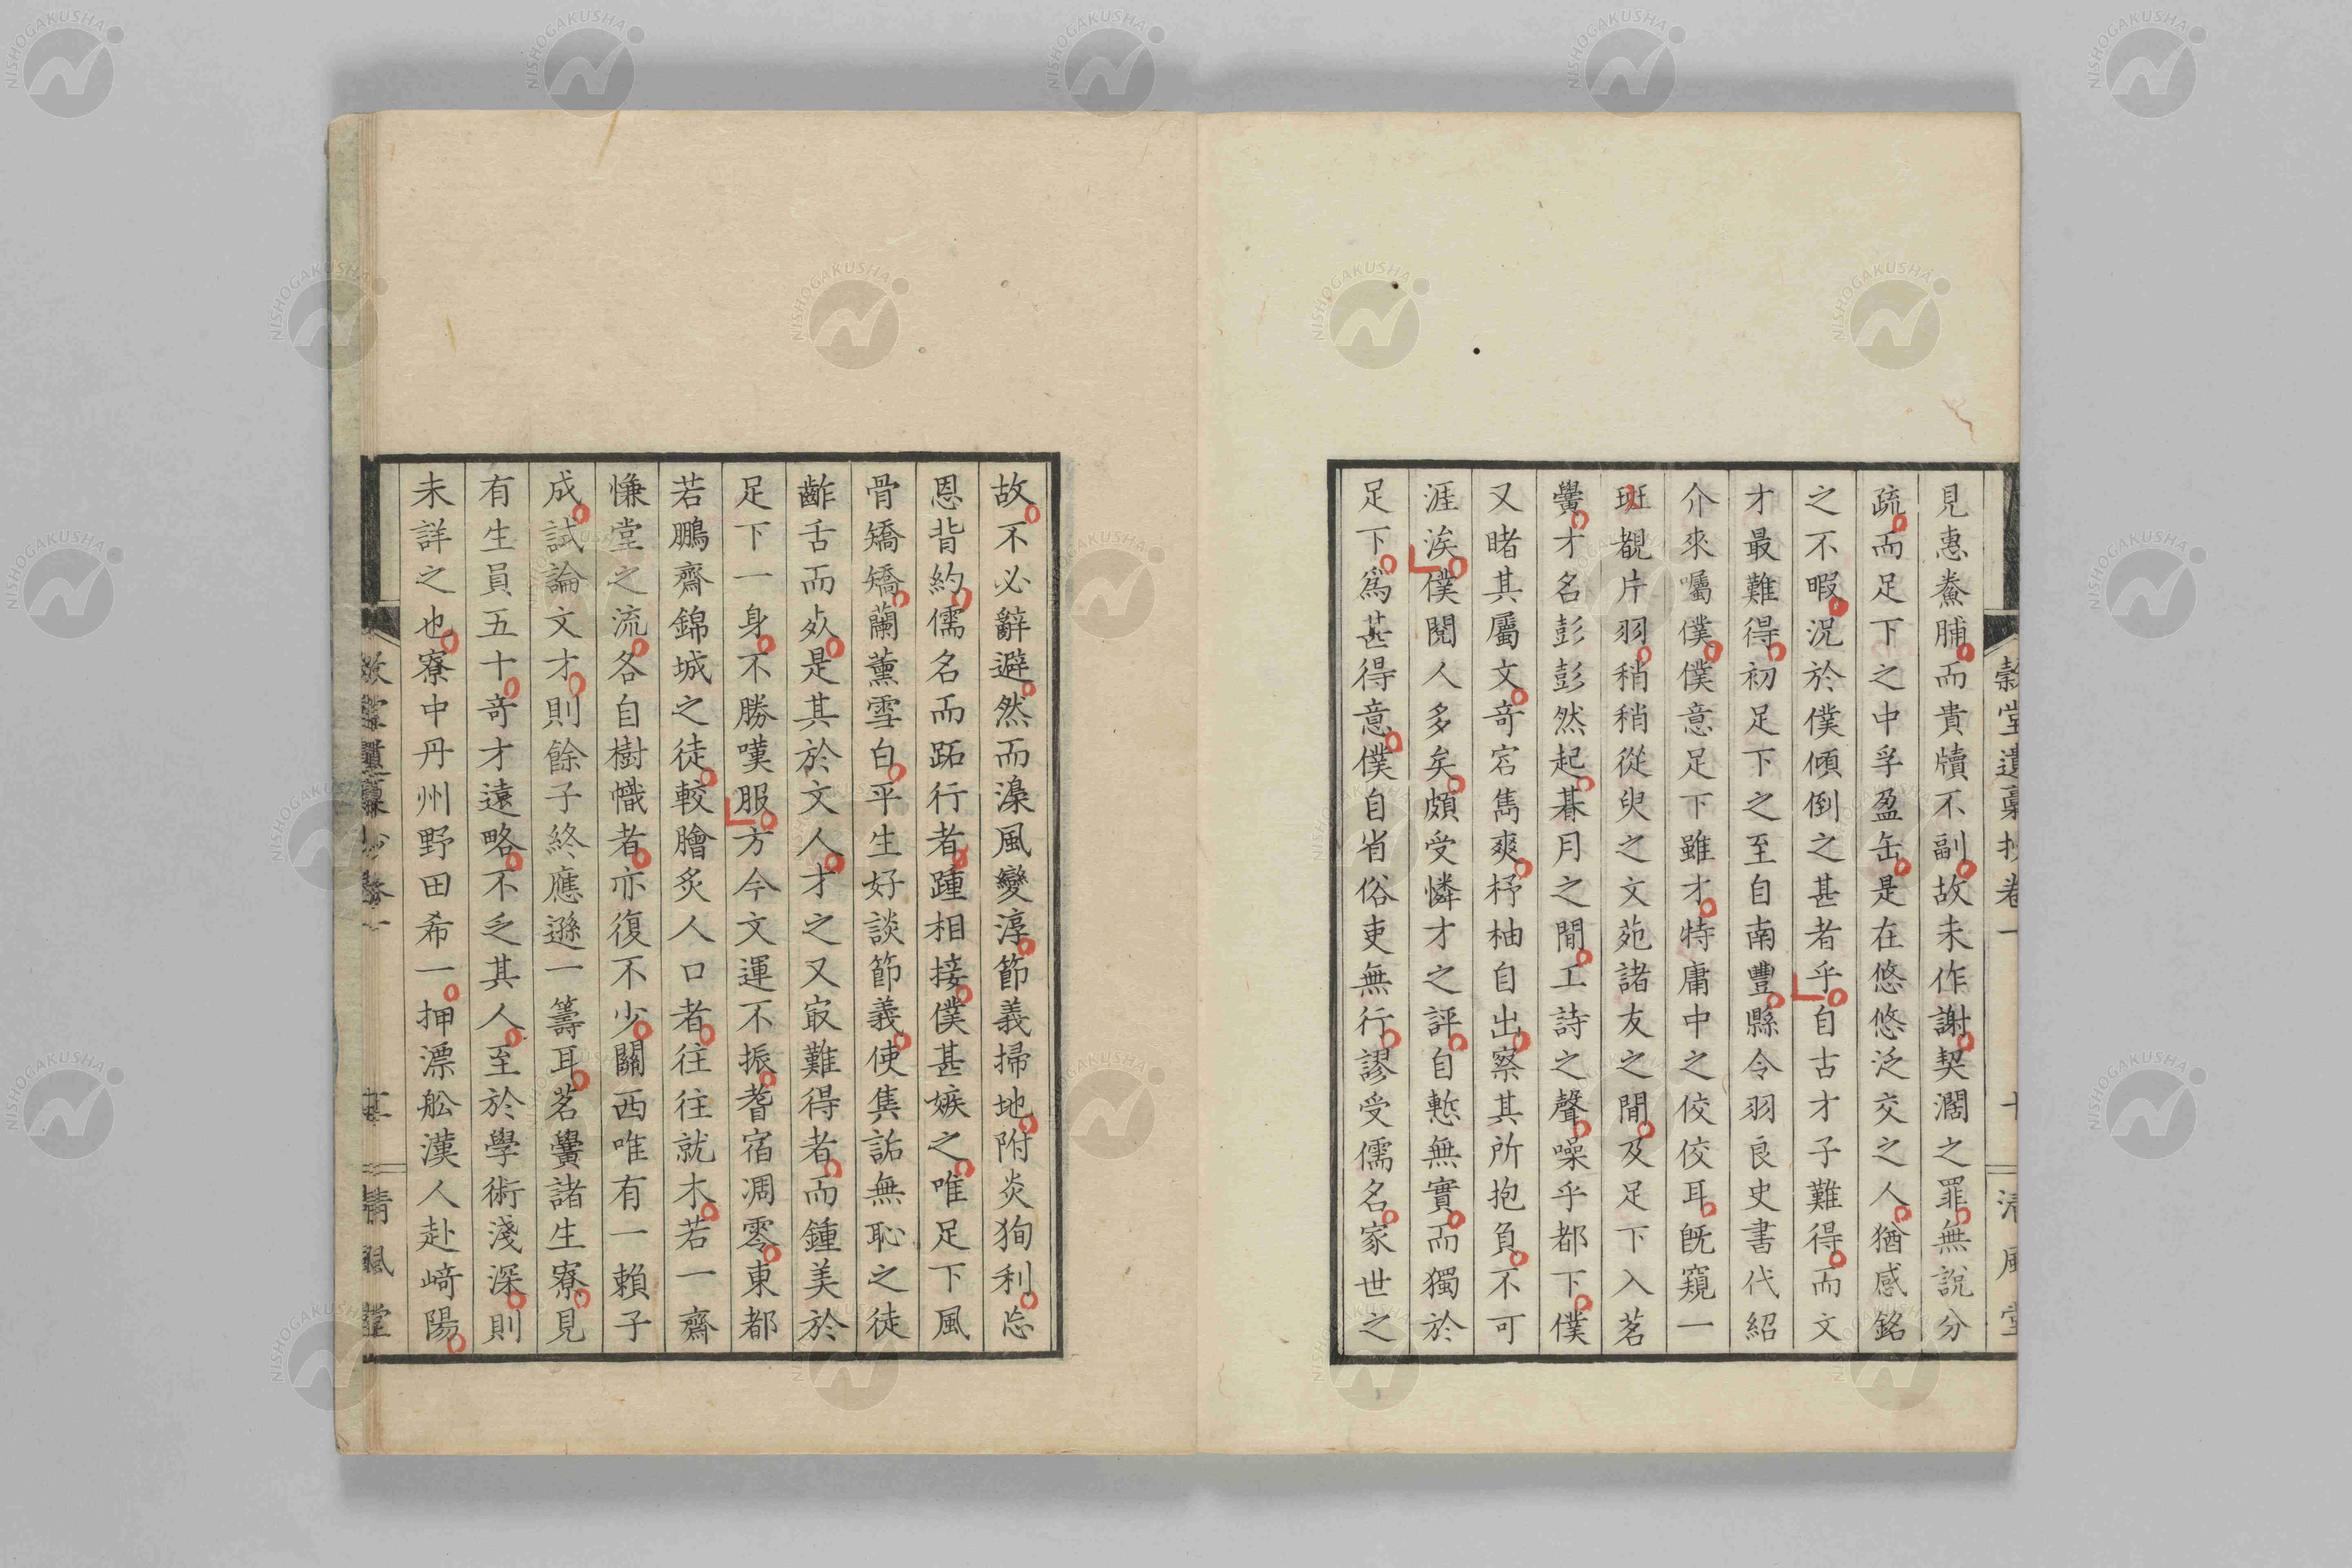 穀堂遺稾抄卷一 清風堂
見惠鯗脯而貴牘不副故未作謝契濶之罪無說分
疏而足下之中孚盈缶是在悠悠泛交之人猶感銘
之不暇況於僕傾倒之甚者乎自古才子難得而文
才最難得初足下之至自南豐縣令羽良史書代紹
介來囑僕僕意足下雖才特庸中之佼佼耳旣窺一
斑覩片羽稍稍從臾之文苑諸友之間及足下入茗
黌才名彭彭然起朞月之間工詩之聲噪乎都下僕
又睹其屬文竒宕雋爽杼柚自出察其所抱負不可
涯涘僕閱人多矣頗受憐才之評自慙無實而獨於
足下爲甚得意僕自省俗吏無行謬受儒名家世之
故不必辭避然而澡風變淳節義掃地附炎狥利忘
恩背約儒名而跖行者踵相接僕甚嫉之唯足下風
骨矯矯蘭薰雪白平生好談節義使集詬無恥之徒
齰舌而𠧧是其於文人才之又㝡難得者而鍾美於
足下一身不勝嘆服方今文運不振耆宿凋零東都
若鵬齋錦城之徒較膾炙人口者往往就木若一齋
慊堂之流各自樹幟者亦復不少關西唯有一賴子
成試論文才則餘子終應遜一籌耳茗黌諸生寮見
有生員五十竒才遠略不乏其人至於學術淺深則
未詳之也寮中丹州野田希一押漂舩漢人赴﨑陽
清風堂